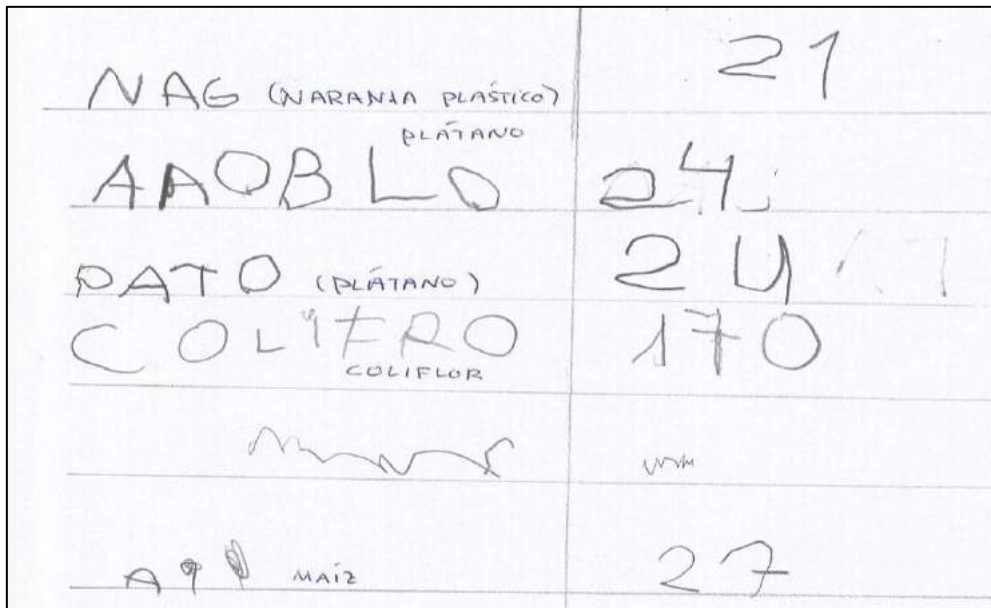 NAG (NARANJA PLÁSTICO) 21
PLÁTANO
AAOBLO 24
PATO (PLÁTANO) 24
COLIFRO 170
COLIFLOR
MAÍZ 27